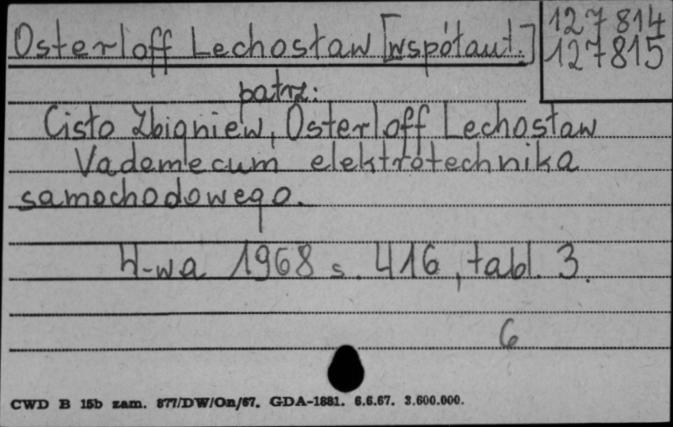 Osterloff Lechosław [współaut.]
127 814
127815
patrz:
Cisło Zbigniew, Osterloff Lechosław
Vademecum elektrotechnika
samochodowego.
W-wa 1968 s. 416, tabl. 3.
6
CWD B 15b zam. 877/DW/On/67. GDA-1881. 6.6.67. 3.600.000.